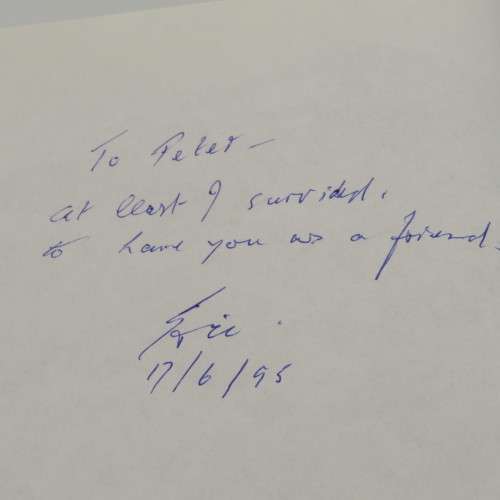 To Peter –
at least I survived.
to have you as a friend.
Eric.
17/6/95